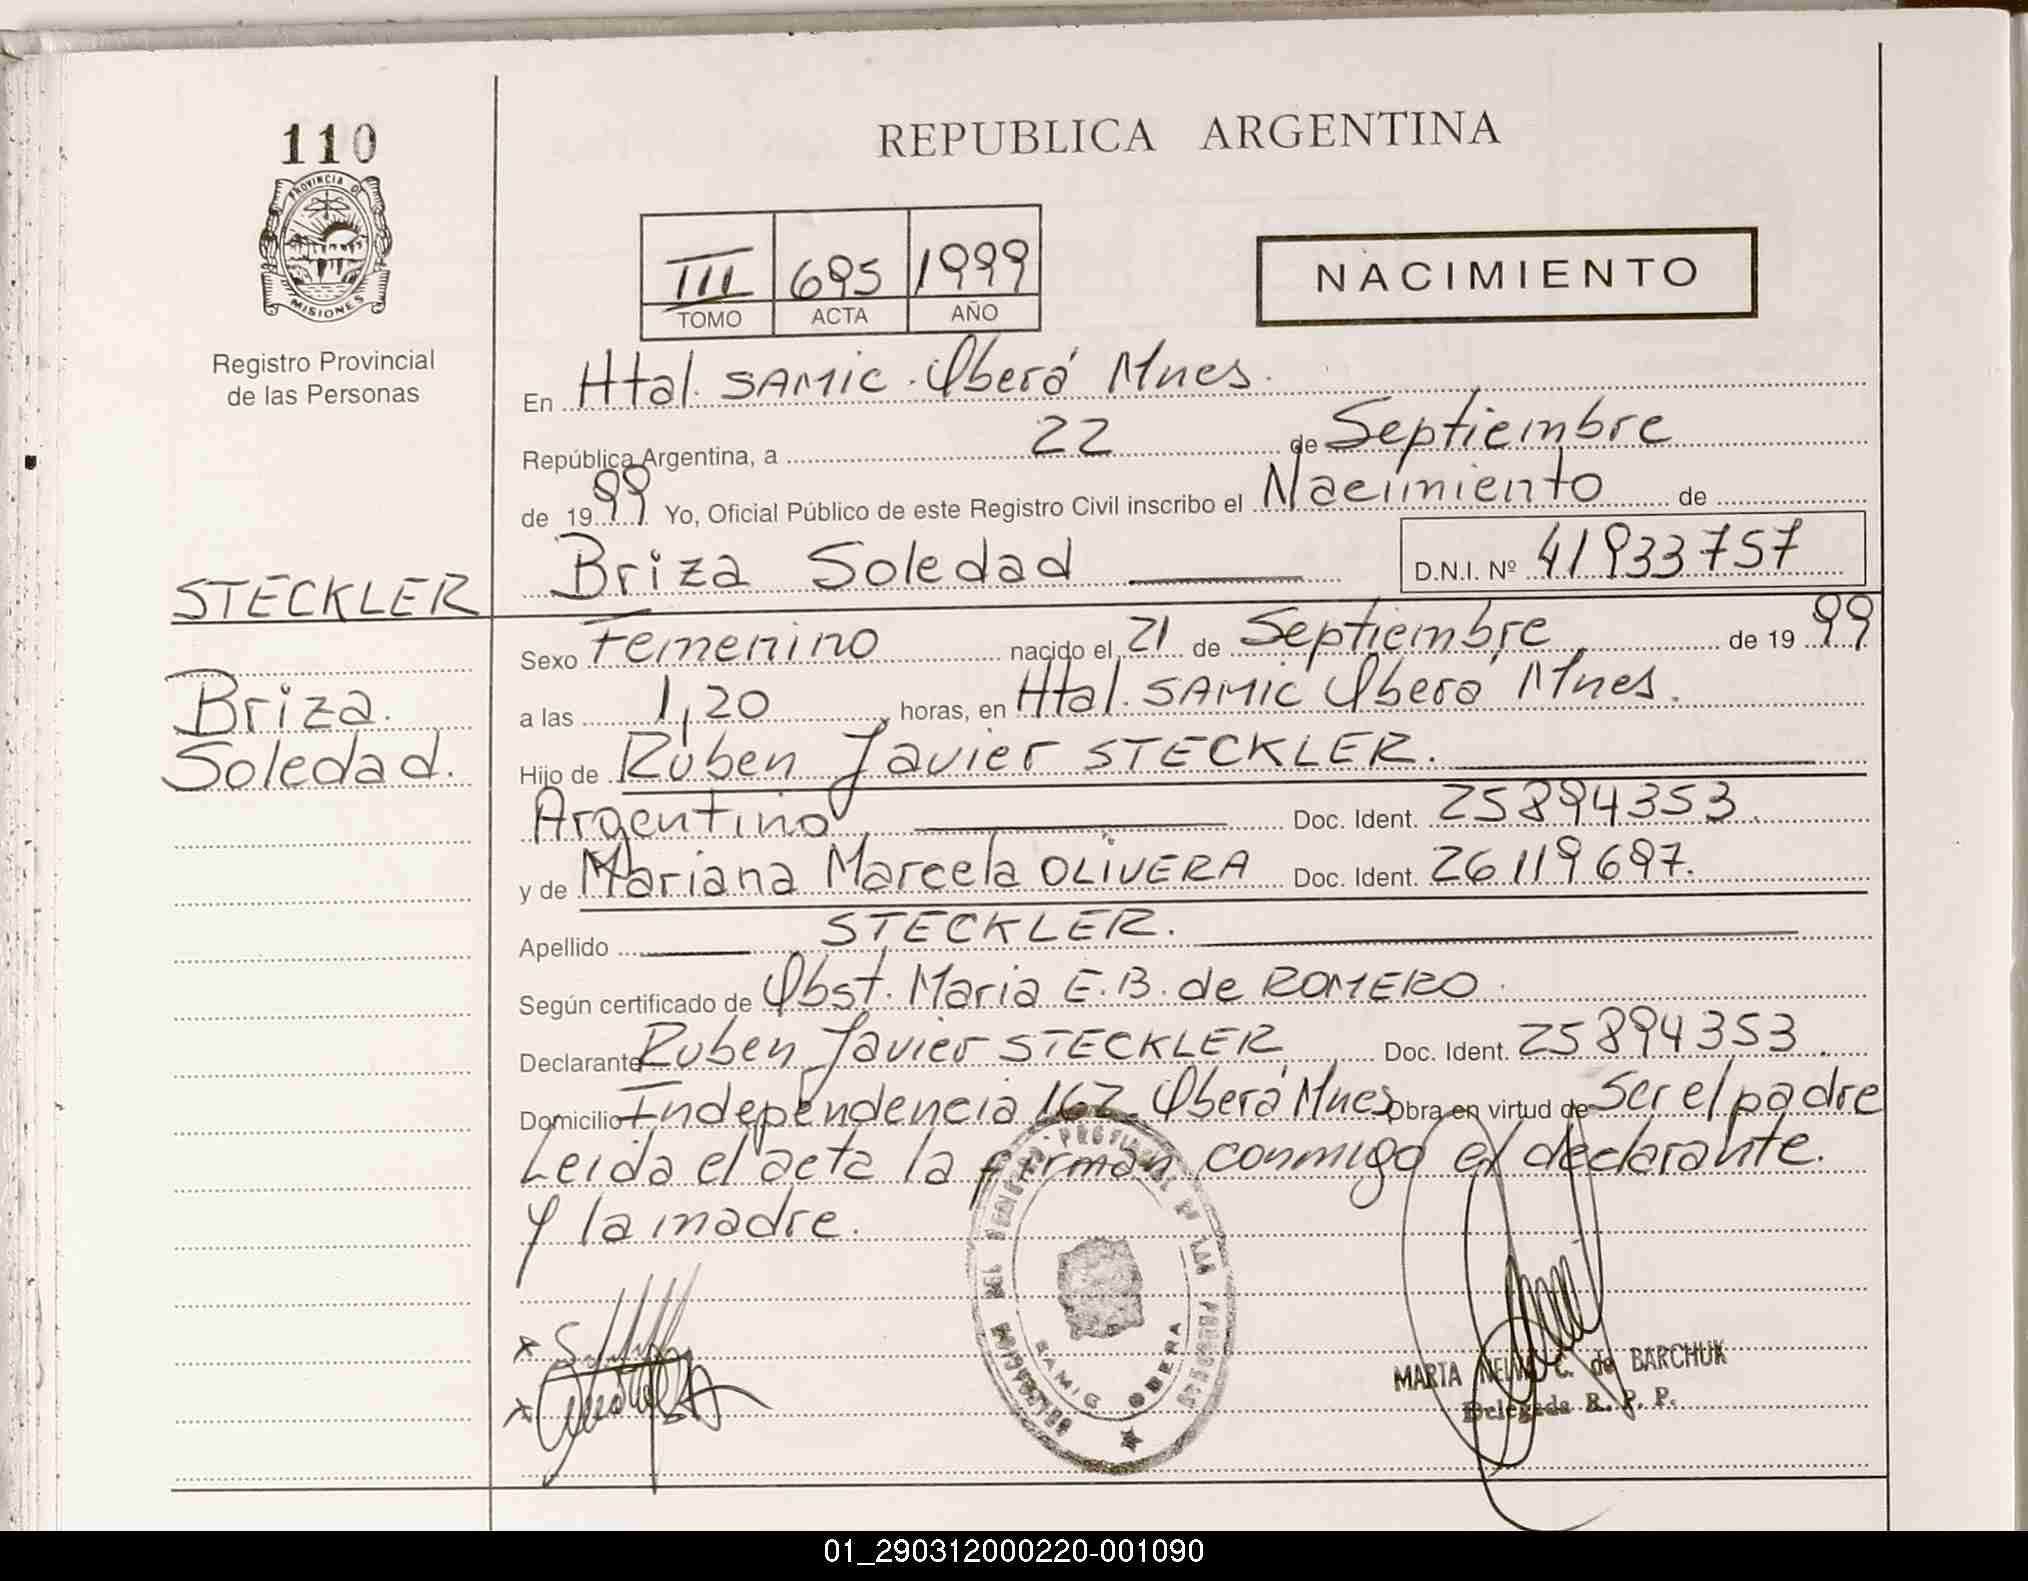 110
PROVINCIA DE
MISIONES
Registro Provincial
de las Personas
REPUBLICA ARGENTINA
III 695 1999
TOMO ACTA AÑO
NACIMIENTO
En Htal. SAMIC. Oberá Mnes.
República Argentina, a 22 de Septiembre
de 1999 Yo, Oficial Público de este Registro Civil inscribo el Nacimiento de
Briza Soledad D.N.I. Nº 41933757
STECKLER
Briza.
Soledad.
Sexo Femenino nacido el 21 de Septiembre de 1999
a las 1,20 horas, en Htal. SAMIC Oberá Mnes.
Hijo de Rúben Javier STECKLER.
Argentino Doc. Ident. 25894353.
y de Mariana Marcela OLIVERA Doc. Ident. 26119697.
Apellido STECKLER.
Según certificado de Obst. Maria E.B. de ROMERO.
Declarante Ruben Javier STECKLER Doc. Ident. 25894353.
Domicilio Independencia 162. Oberá Mnes Obra en virtud de Ser el padre
Leida el acta la firman conmigo el declarante.
Y la madre.
DEL REGISTRO PROVINCIAL DE LAS PERSONAS
SAMIC OBERA
MARTA C. de BARCHUK
Delegada R. P. P.
01_290312000220-001090